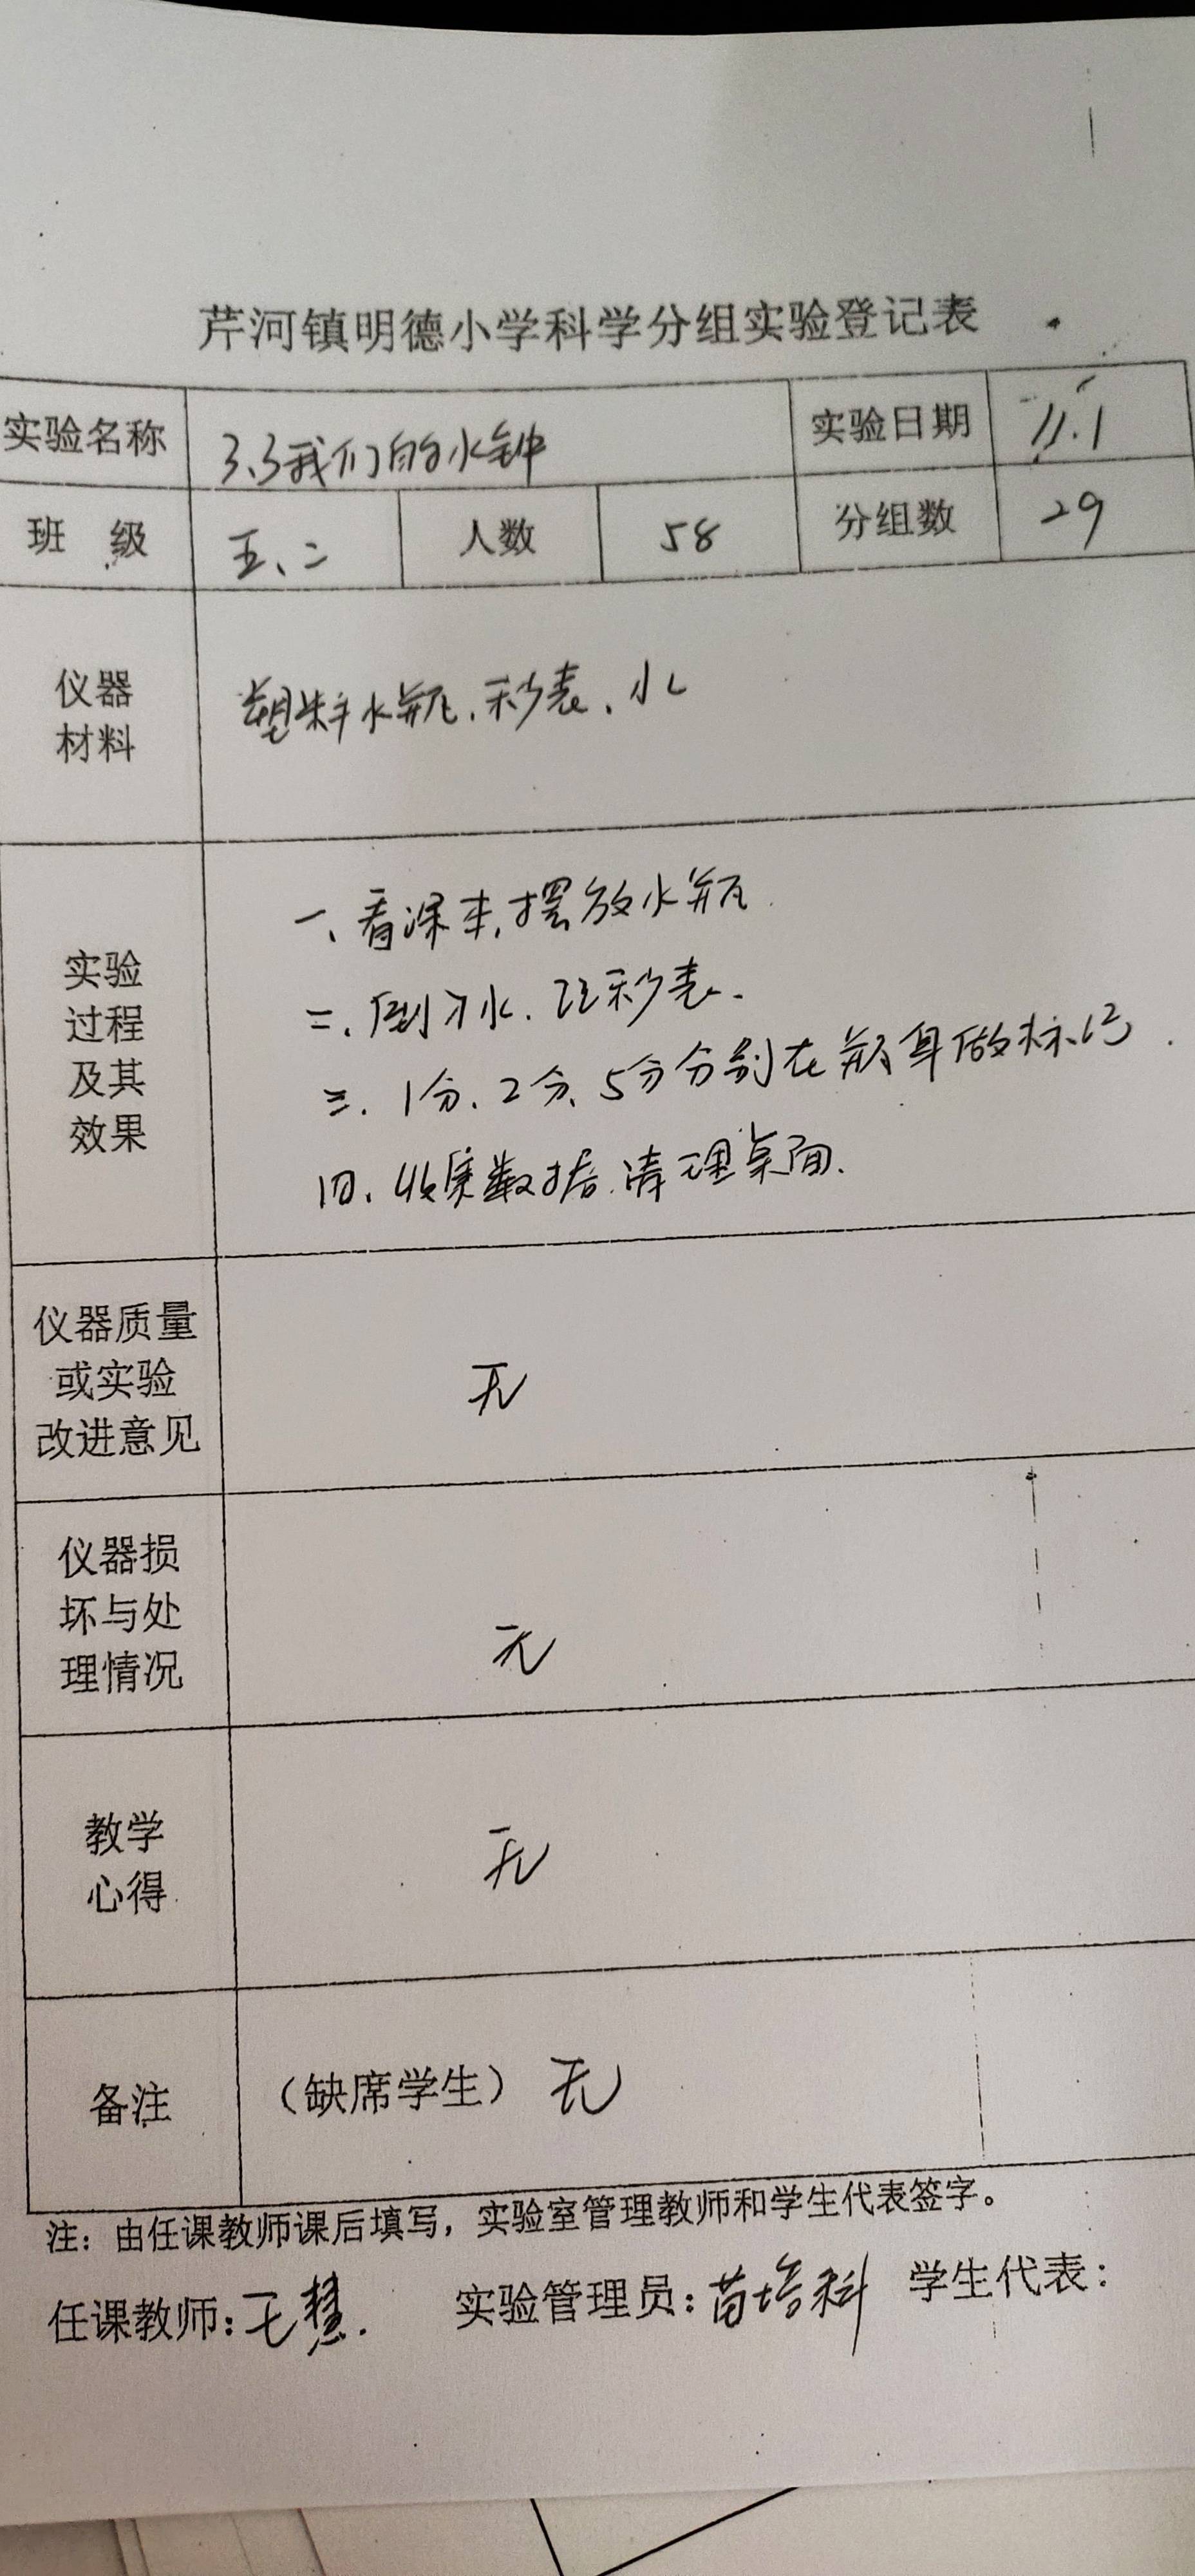 芹河镇明德小学科学分组实验登记表
实验名称 3.3我们的水钟 实验日期 11.1
班 级 五、二 人数 58 分组数 29
仪器
材料
塑料水瓶、秒表、水
实验
过程
及其
效果
一、看课本,摆放水瓶.
二、倒入水、记秒表.
三、1分、2分、5分分别在瓶身做标记.
四、收集数据.清理桌面.
仪器质量
或实验
改进意见
无
仪器损
坏与处
理情况
无
教学
心得
无
备注 (缺席学生) 无
注：由任课教师课后填写，实验室管理教师和学生代表签字。
任课教师: 王慧. 实验管理员: 苗培科 学生代表: